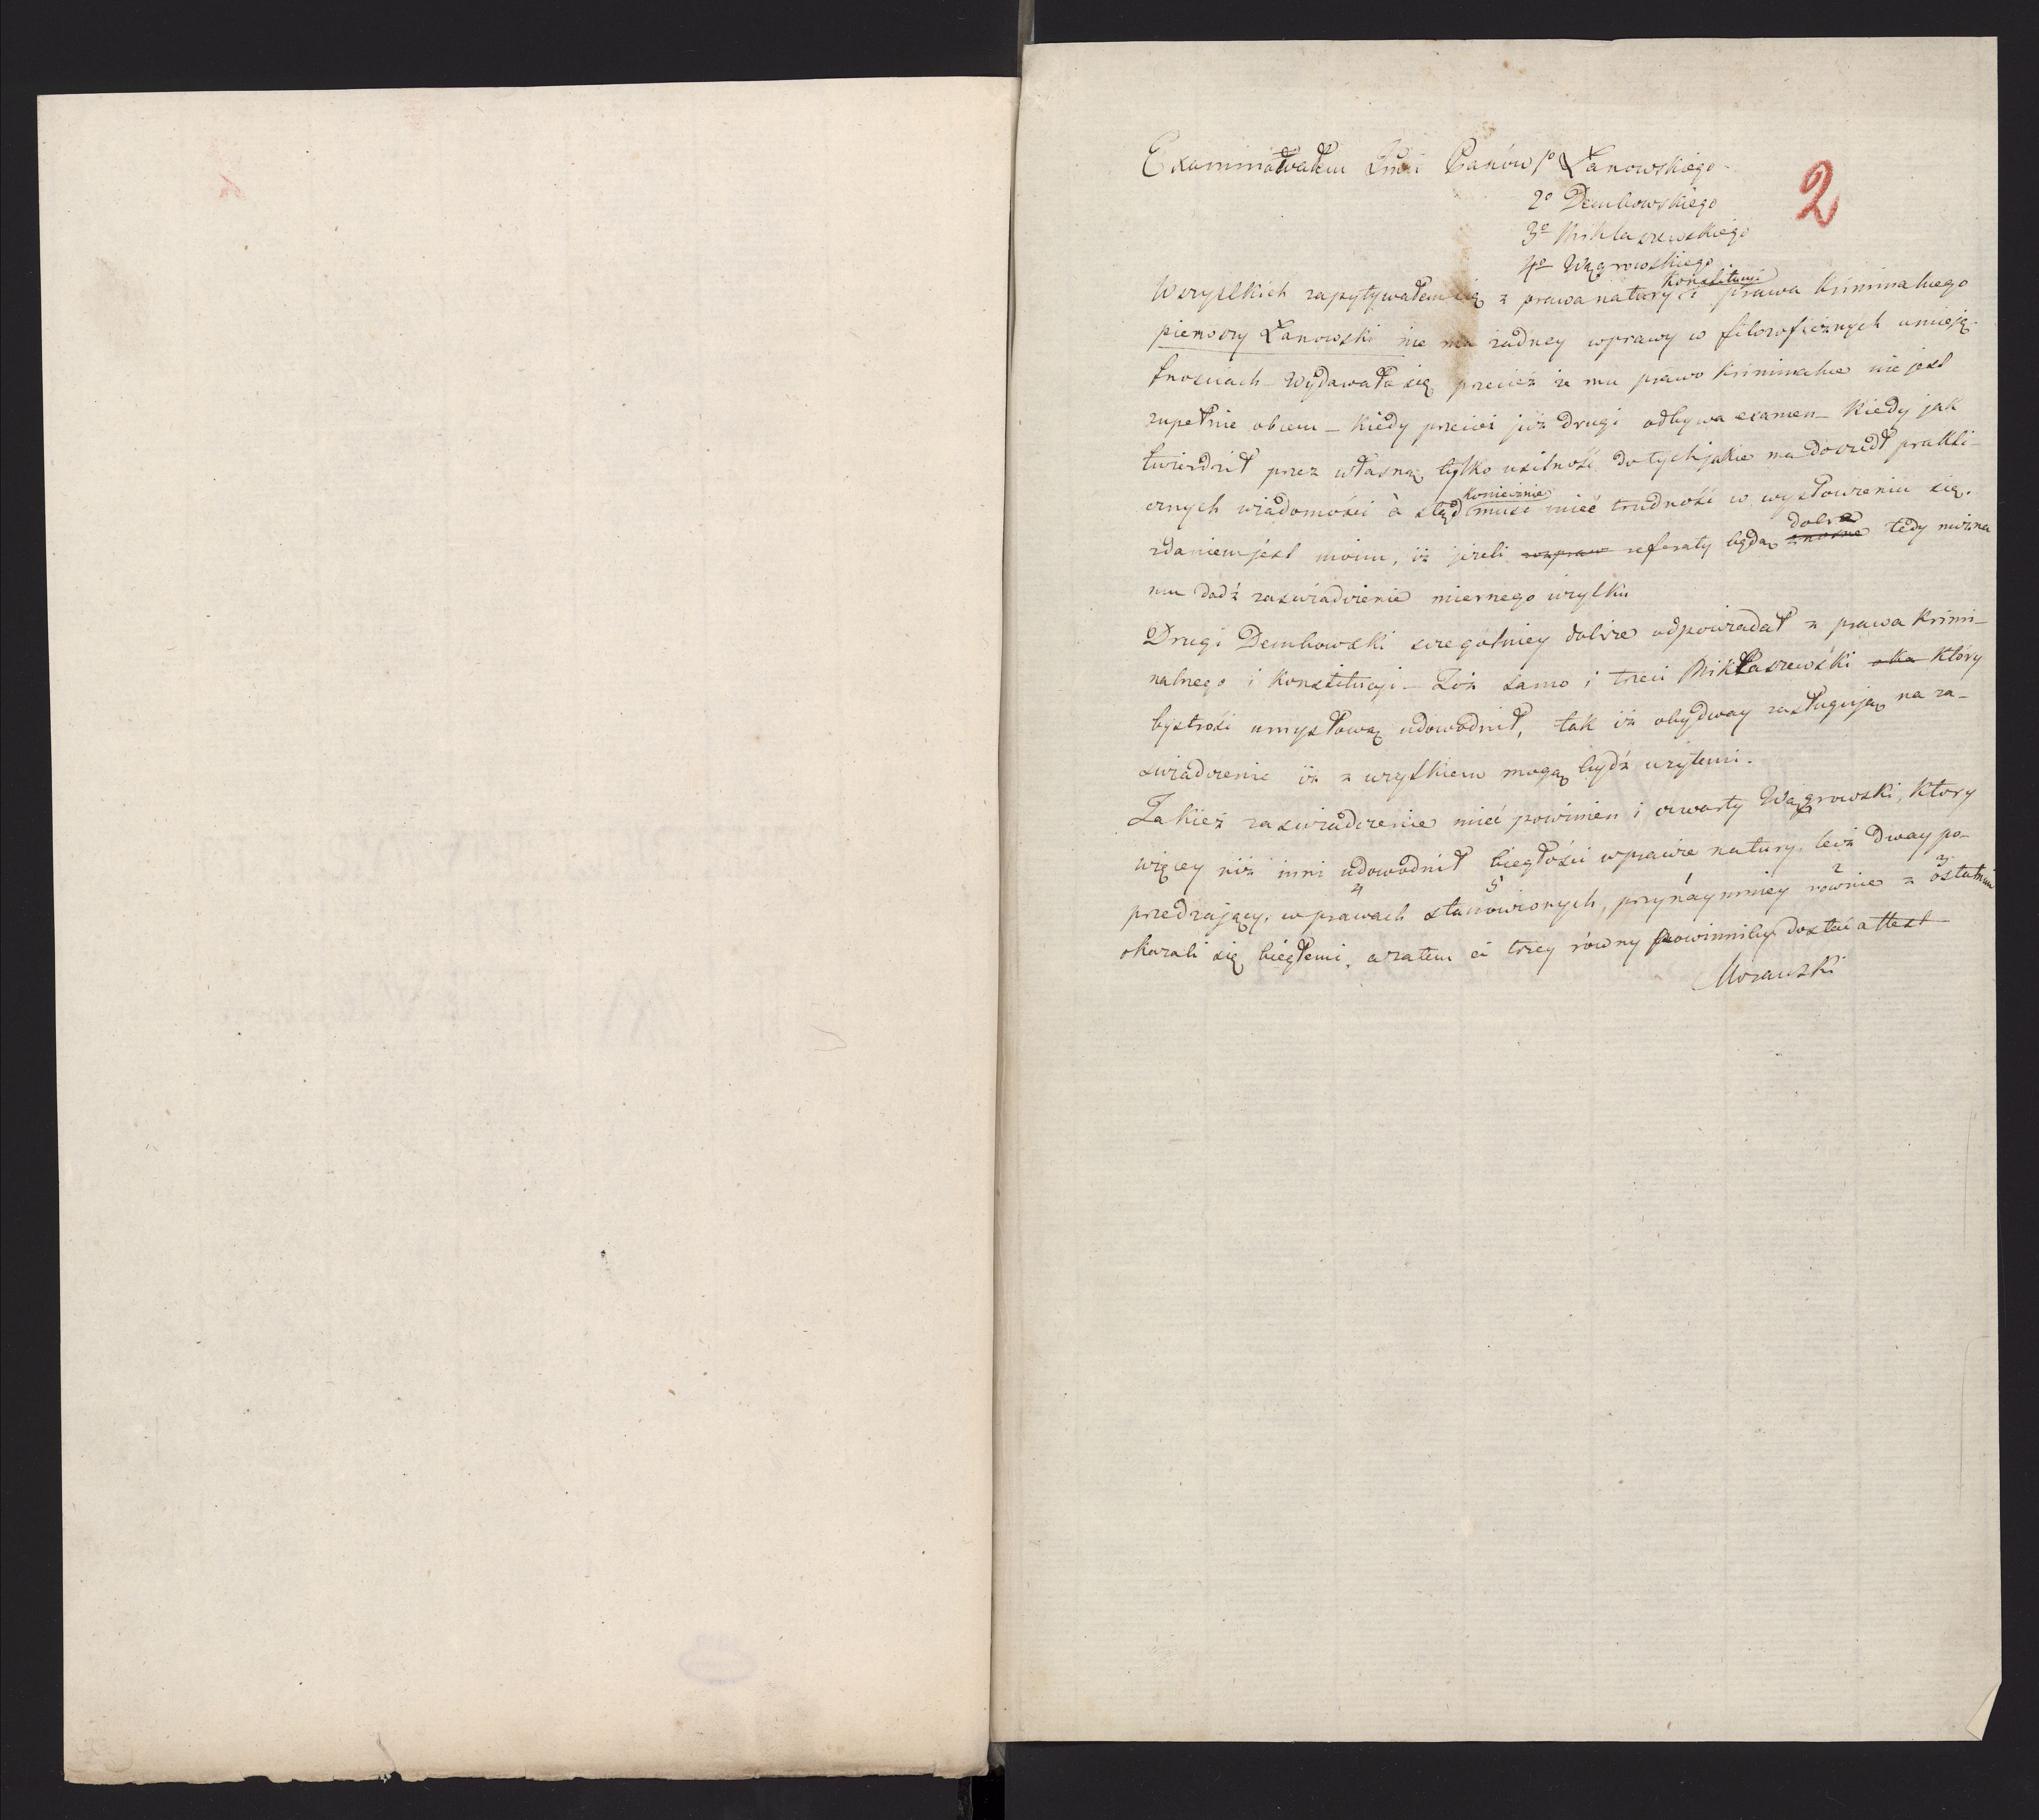 Examinowałem Imci Panów 1º Łanowskiego
2º Dembowskiego
2
3º Miklaszewskiego
4º Wągrowskiego
Konstitucyi
Wszystkich zapytywałem się z prawa natury i prawa kriminalnego
pierwszy Łanowski nie ma żadney wprawy w filozoficznych umieję-
tnościach – wydawało się przecież że mu prawo kriminalne nie jest
zupełnie obcem – kiedy przecież już drugi odbywa examen – kiedy jak
twierdził przez własną tylko usilność do tych jakie ma doszedł prakti-
koniecznie
cznych wiadomości a ztąd musi mieć trudność w wysłowieniu się.
dobre
zdaniem jest moim, iż jeżeli rozpraw referaty będą znośne tedy można
mu dadź zaswiadczenie miernego użytku
Drugi Dembowski szczegulniey dobrze odpowiadał z prawa krimi-
nalnego i Konstitucji – Toż samo i trzeci Mikłaszewski oka który
bystrość umysłową udowodnił, tak iż obydway zasługują na za-
swiadczenie iż z uzytkiem mogą bydź użytemi.
Takież zaswiadczenie mieć powinien i czwarty Wągrowski, ktory
więcey niż inni udowodnił biegłości wprawie natury, lecz dway po-
4 5 1 2 3
przedzający, w prawach stanowionych, przynaymniey rownie z ostatnim
okazali się biegłemi, a zatem ci trzey rowny powinniby dostać attest
Morawski